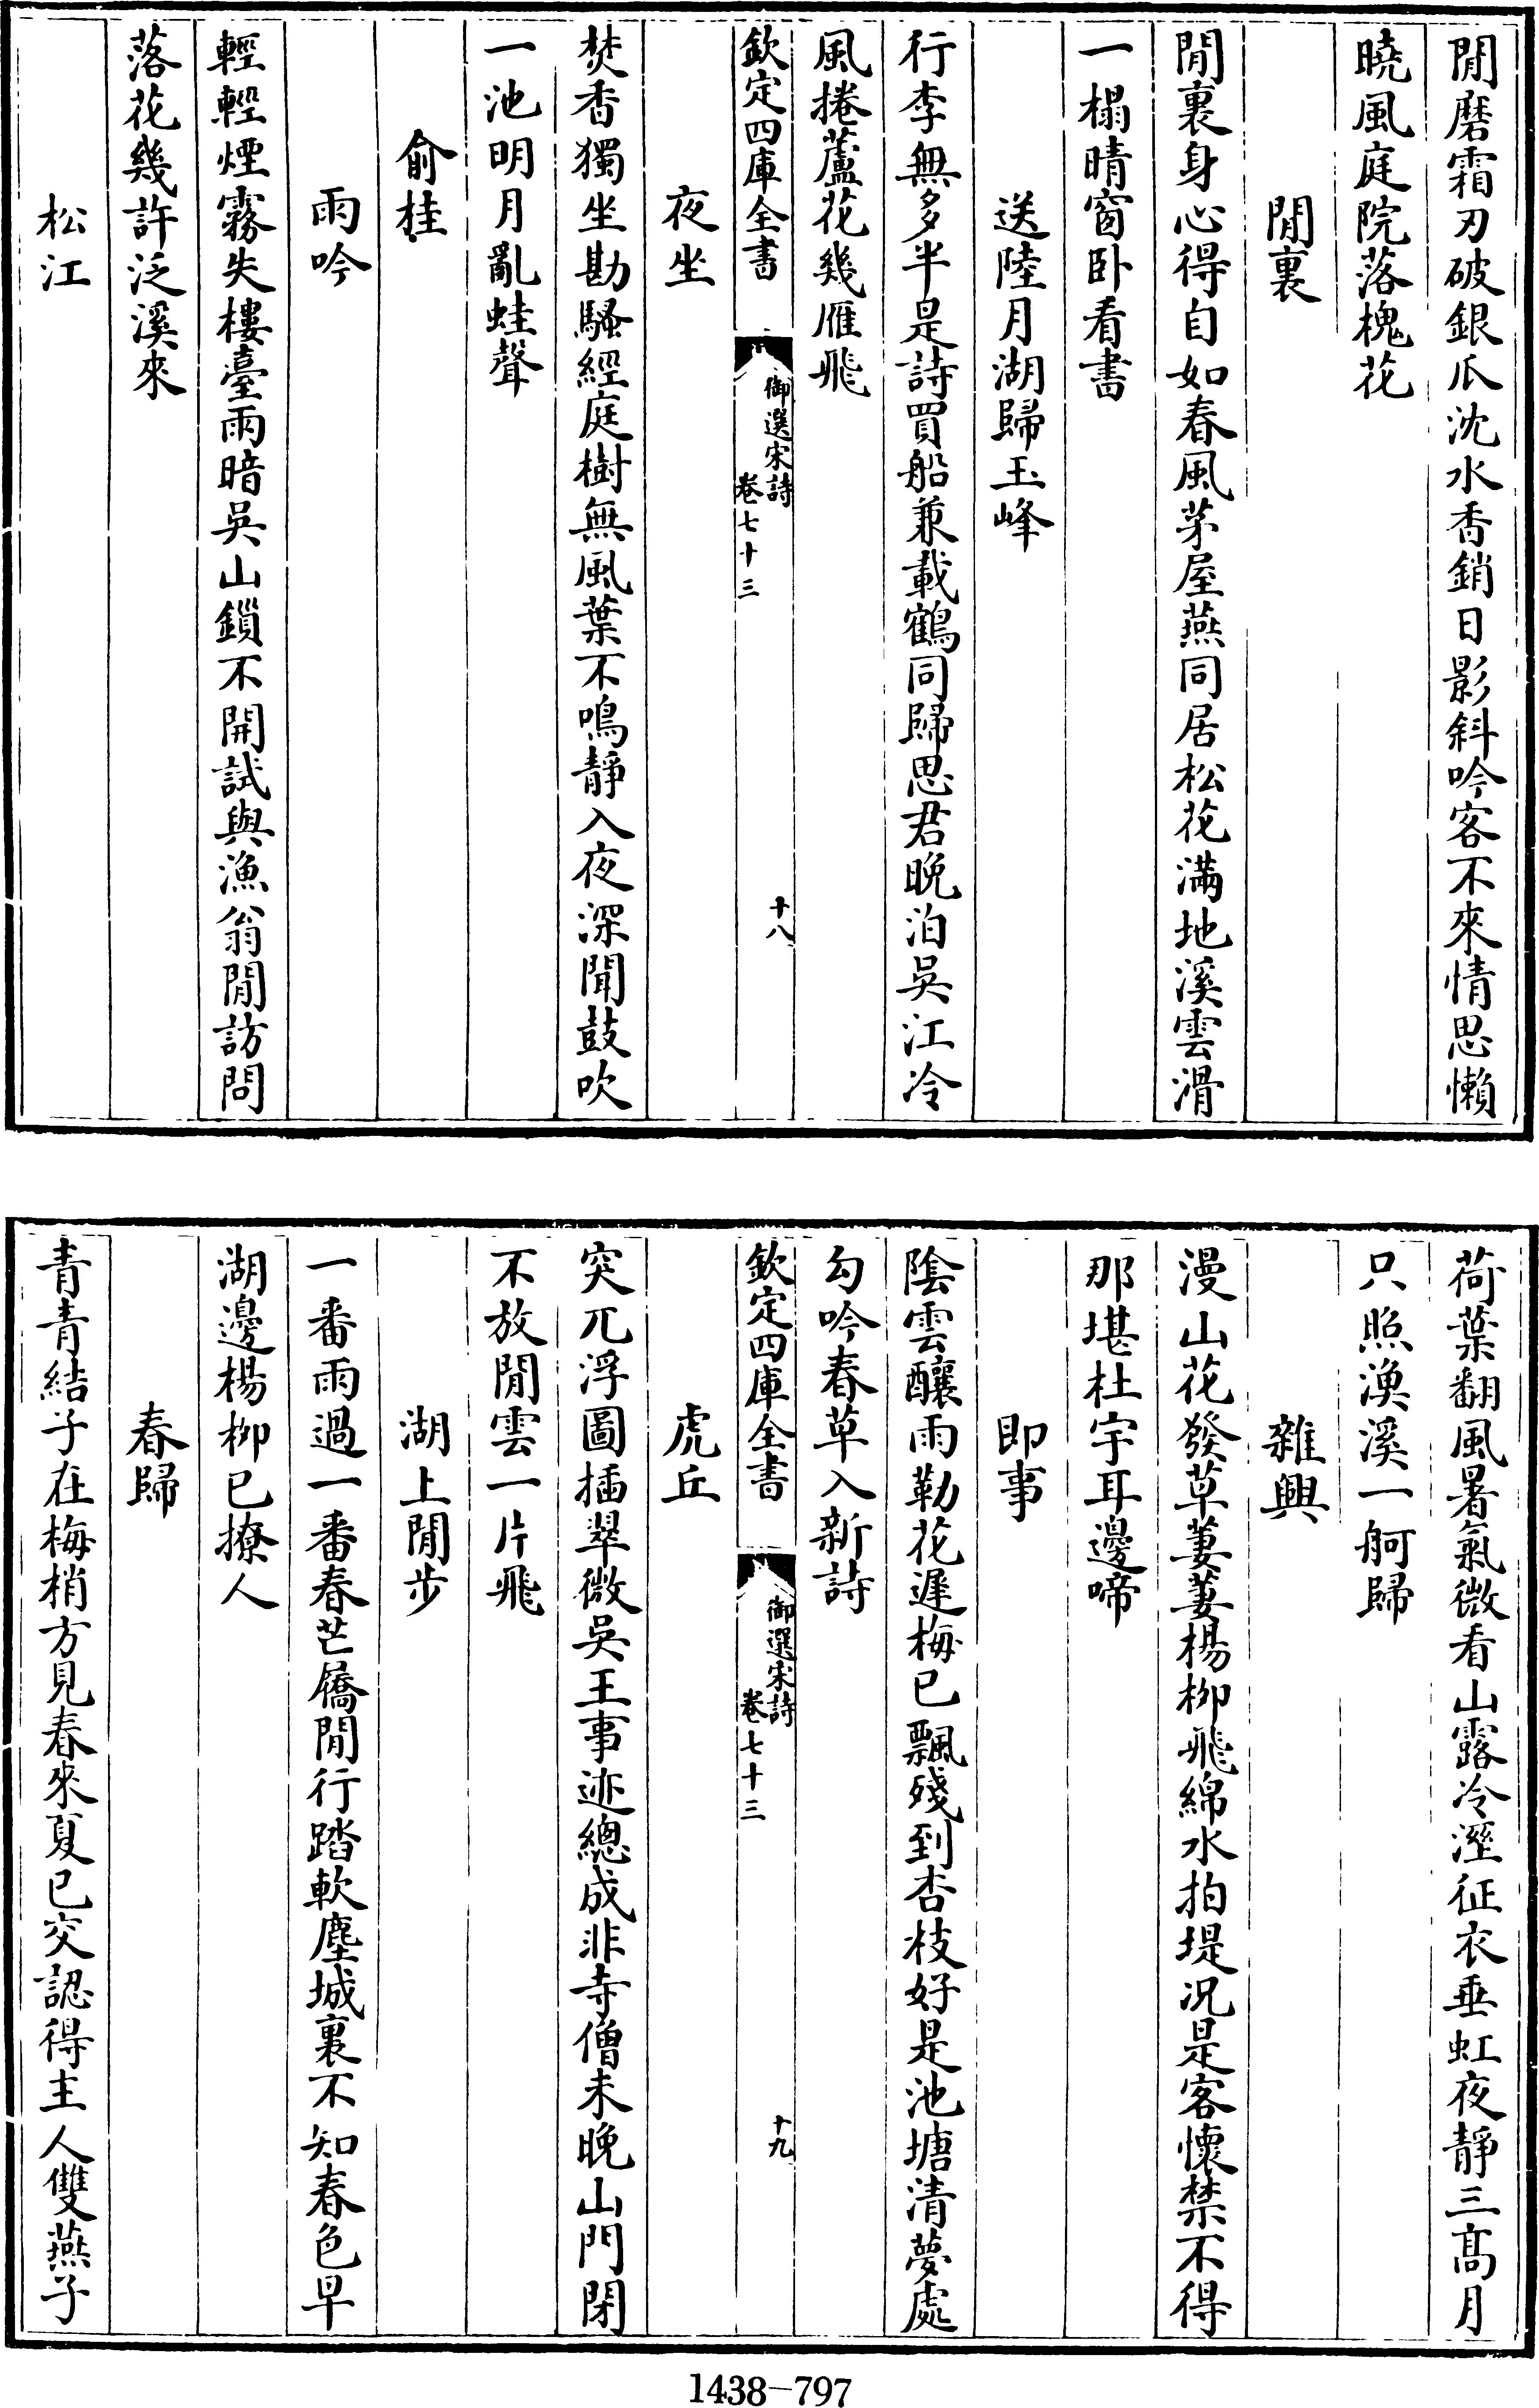 閒磨霜刃破銀瓜沈水香銷日影斜吟客不來情思懶
曉風庭院落槐花
閒裏
閒裏身心得自如春風茅屋燕同居松花滿地溪雲滑
一榻晴窗卧看書
送陸月湖歸玉峰
行李無多半是詩買船兼載鶴同歸思君晚泊吳江冷
風捲蘆花幾雁飛
欽定四庫全書
御選宋詩
卷七十三
十八
夜坐
焚香獨坐勘騷經庭樹無風葉不鳴靜入夜深聞鼓吹
一池明月亂蛙聲
俞桂
雨吟
輕輕煙霧失樓臺雨暗吳山鎖不開試與漁翁閒訪問
落花幾許泛溪來
松江
荷葉翻風暑氣微看山露冷溼征衣垂虹夜靜三高月
只照漁溪一舸歸
雜興
漫山花發草萋萋楊柳飛綿水拍堤況是客懷禁不得
那堪杜宇耳邊啼
即事
陰雲釀雨勒花遲梅已飄殘到杏枝好是池塘清夢處
勾吟春草入新詩
欽定四庫全書
御選宋詩
卷七十三
十九
虎丘
突兀浮圖插翠微吳王事迹總成非寺僧未晚山門閉
不放閒雲一片飛
湖上閒步
一番雨過一番春芒屩閒行踏軟塵城裏不知春色早
湖邊楊柳已撩人
春歸
青青結子在梅梢方見春來夏已交認得主人雙燕子
1438-797